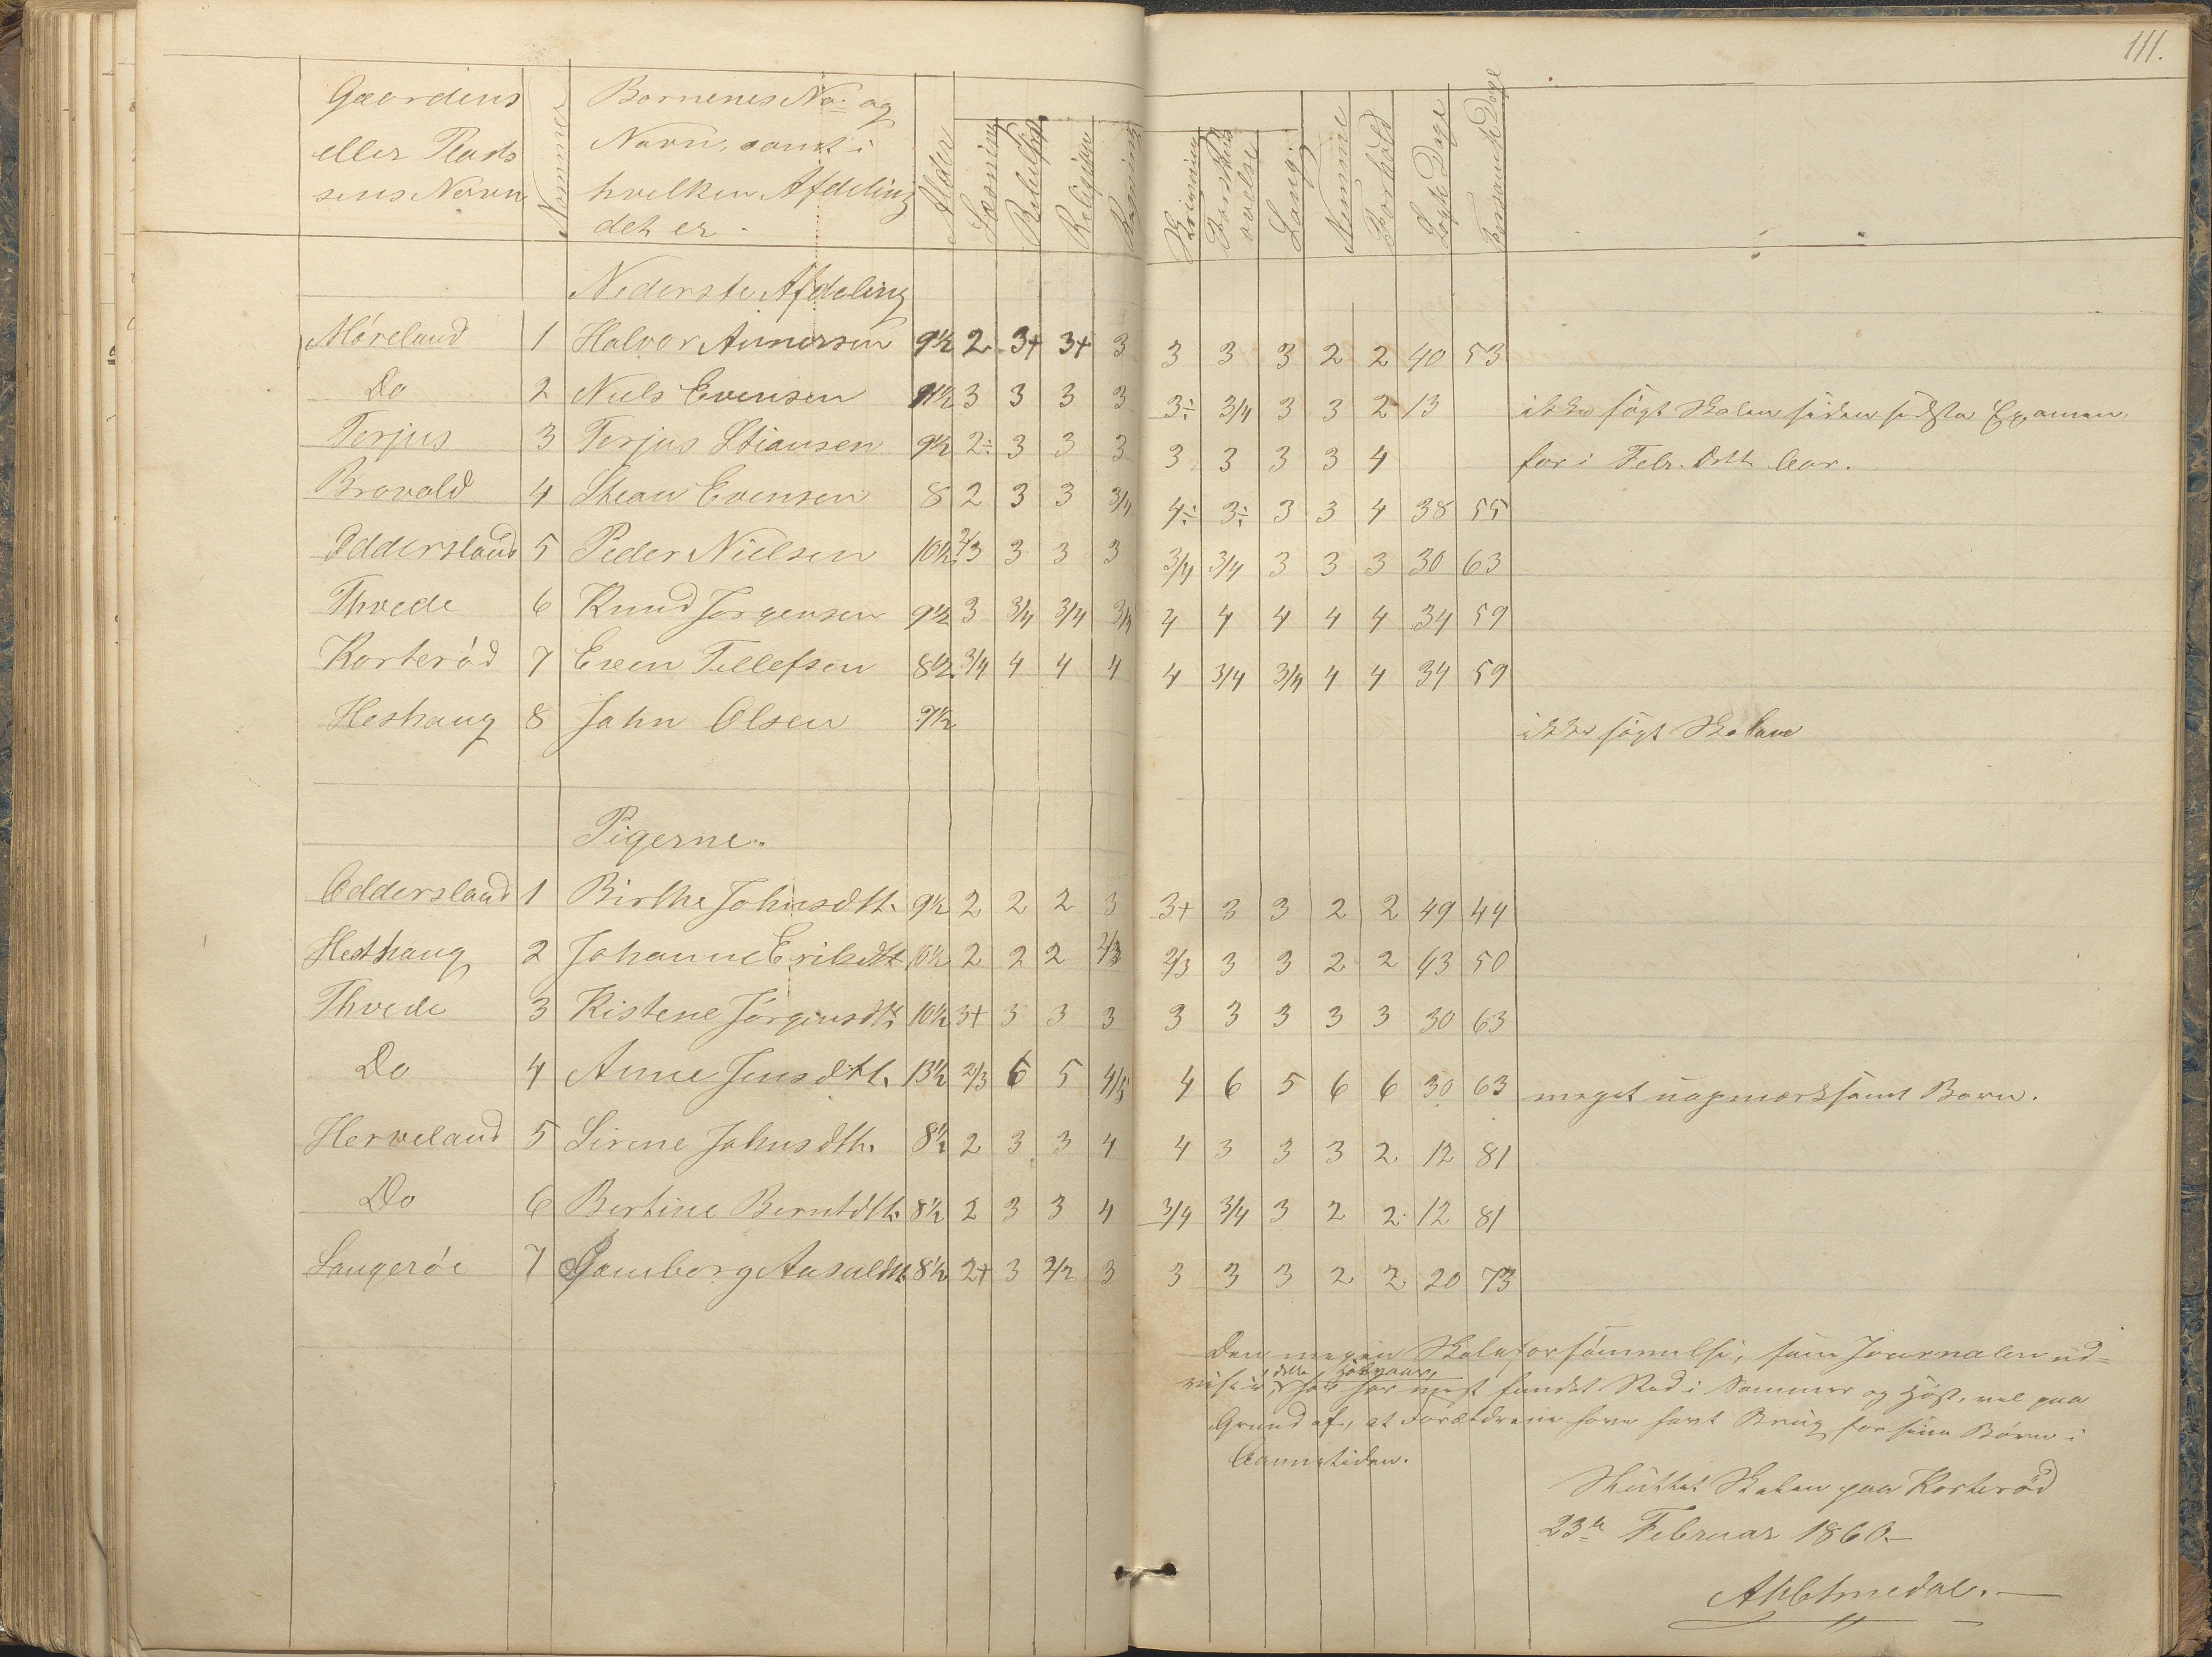 111.
Gaardens eller Pladsens Navn | Nummer | Børnenes No og Navn, samt i hvilken Afdeling det er. | Alder | Læsning | Religion | Regning | Skrivning | Sang | Nemme | Forhold | Søgte Dage | Forsømte Dage
Nederste Afdeling
Möreland 1 Halvor Annersen 9½ 2 3+ 3+ 3 3 3 3 2 2 40 53
Do 2 Niels Evensen 3 3 3 3 3÷ 3/4 3 3 2 13 ikke søgt Skolen siden sidste Examen
Terjus 3 Terjus Stiansen 9½ 2÷ 3 3 3 3 3 3 3 4 for i Febr. dette Aar.
Bravold 4 Stean Evensen 8 2 3 3 3/4 4÷ 3÷ 3 3 4 38 55
Oddersland 5 Peder Nielsen 10½ 2/3 3 3 3 3/4 3/4 3 3 3 30 63
Thvede 6 Knud Jørgensen 9½ 3 3/4 3/4 3/4 4 4 4 4 4 34 59
Korteröd 7 Even Tellefsen 8½ 3/4 4 4 4 4 3/4 3/4 4 4 34 59
Heshaug 8 John Olsen ikke søgt Skolen
Pigerne.
Oddersland 1 Birthe Johnsdtt. 9½ 2 2 2 3 3+ 3 3 2 2 49 44
Hesthaug 2 Johanne Eriksdtt 10½ 2 2 2 2/3 2/3 3 3 2 2 43 50
Thvede 3 Kistene Jörgensdtt 10½ 3+ 3 3 3 3 3 3 3 3 30 63
Do 4 Anne Jensdtt. 13½ 2/3 6 5 4/5 4 6 5 6 6 30 63 meget uopmærksomt Barn.
Herveland 5 Sirene Johnsdtt. 8½ 2 3 3 4 4 3 3 3 2 12 81
Do 6 Bertine Berntdtt. 8½ 2 3 3 4 3/4 3/4 3 2 2 12 81
Langeröe 7 Gunborg 8½ 2+ 3 3 3 3 3 2 2 20 73
Den megen Skoleforsømmelse, som Journalen ud-
viser, dette Skoleaar, har mest fundet Sted i Sommer og Høst, vel paa
Grund af, at Forældrene have havt Brug for sine Børn i
Aannetiden.
Sluttet Skolen paa Korteröd
23de Februar 1860.